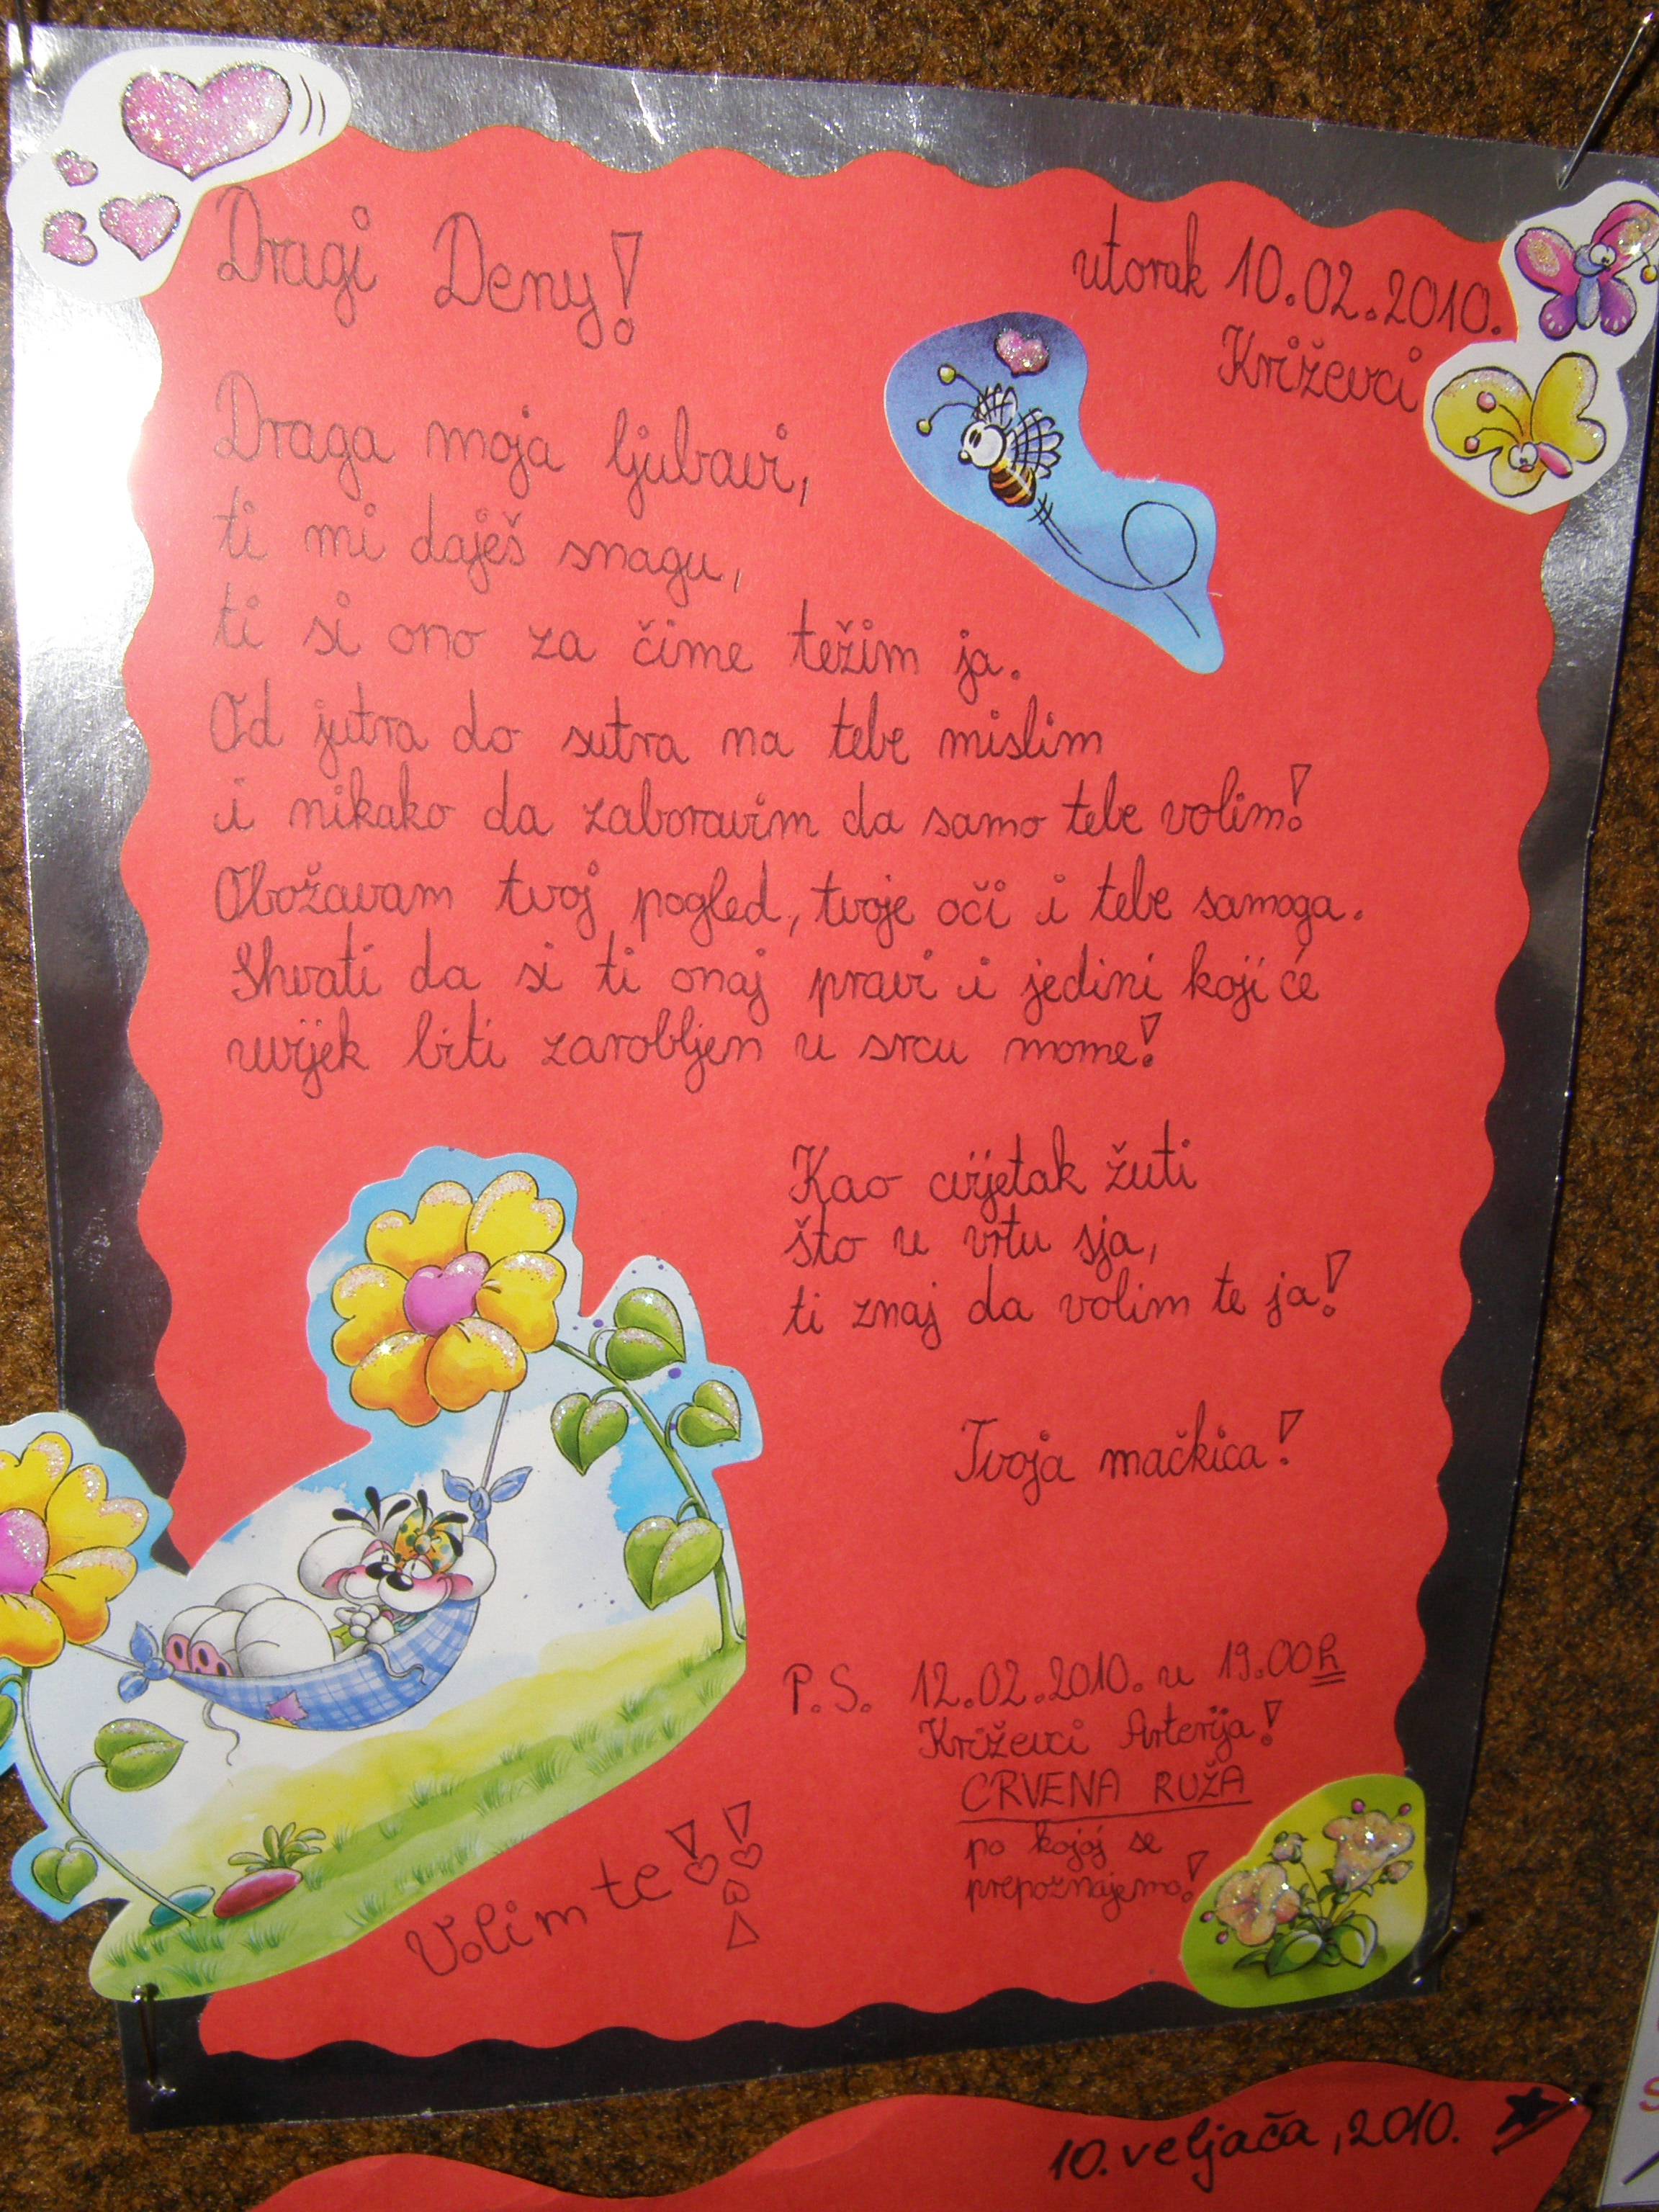 Dragi Deny!
utorak 10.02.2010.
Križevci
Draga moja ljubavi,
ti mi daješ snagu,
ti si ono za čime težim ja.
Od jutra do sutra na tebe mislim
i nikako da zaboravim da samo tebe volim!
Obožavam tvoj pogled, tvoje oči i tebe samoga.
Shvati da si ti onaj pravi i jedini koji će
uvijek biti zarobljen u srcu mome!
Kao cvijetak žuti
što u vrtu sja,
ti znaj da volim te ja!
Tvoja mačkica!
P.S. 12.02.2010. u 19.00h
Križevci Arterija!
CRVENA RUŽA
po kojoj se
prepoznajemo!
Volim te!!
10. veljača, 2010.